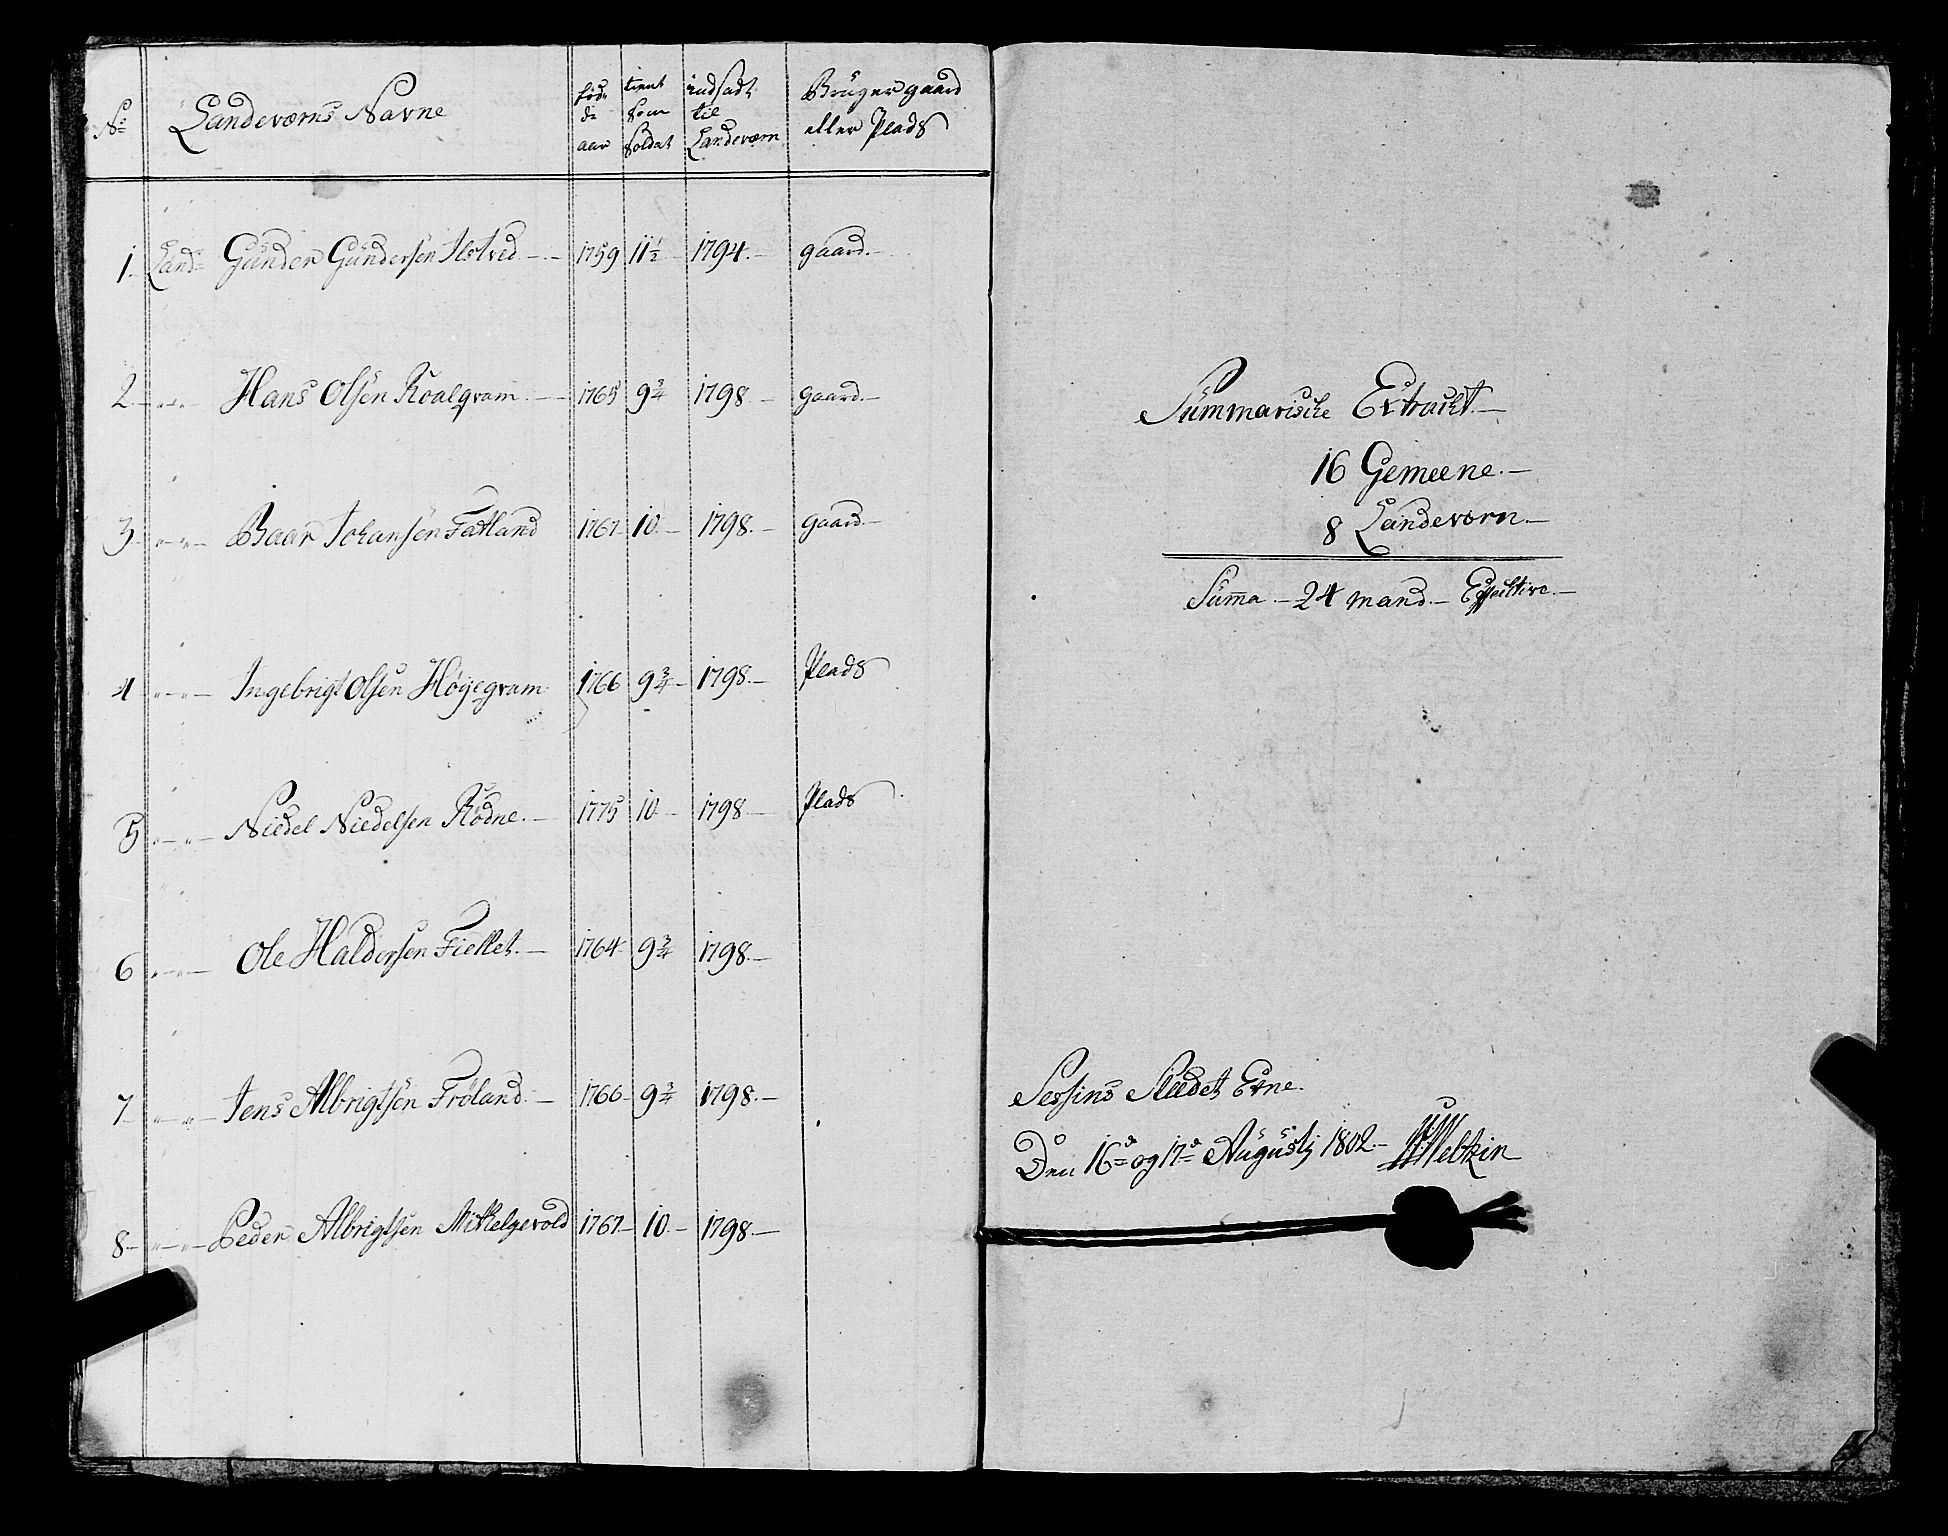 No
Landeværns Navne
fød-
de
aar
tient
som
Soldat
indsadt
til
Landeværn
Brüger gaard
eller Plads
1. Land= Günder Gündersen Ilstved 1759 11½ 1794.- gaard.-
2 Hans Olsen Roalqvam. 1765 9¾ 1798 - gaard.-
3 Baar Johansen Fatland 1767 10.- 1798.- gaard.-
4 Ingebrigt Olsen Høgeqvam 1766 9¾ 1798.- Plads
5 Niedel Niedelsen Rödne.- 1775 10.- 1798.- Plads
6 Ole Haldorsen Fiellet.- 1764 9¾ 1798.-
7 Jens Albrigtsen Frøland.- 1766 9¾ 1798.-
8 Peder Albrigtsen Mikkelgevold 1767 10.- 1798.-
Summarische Extract.-
16 Gemeene.-
8 Landevorn.-
Summa.- 24 mand.- Effective.-
Sessions Steedet Etne.
Den 16de og 17de Augusty 1802.-